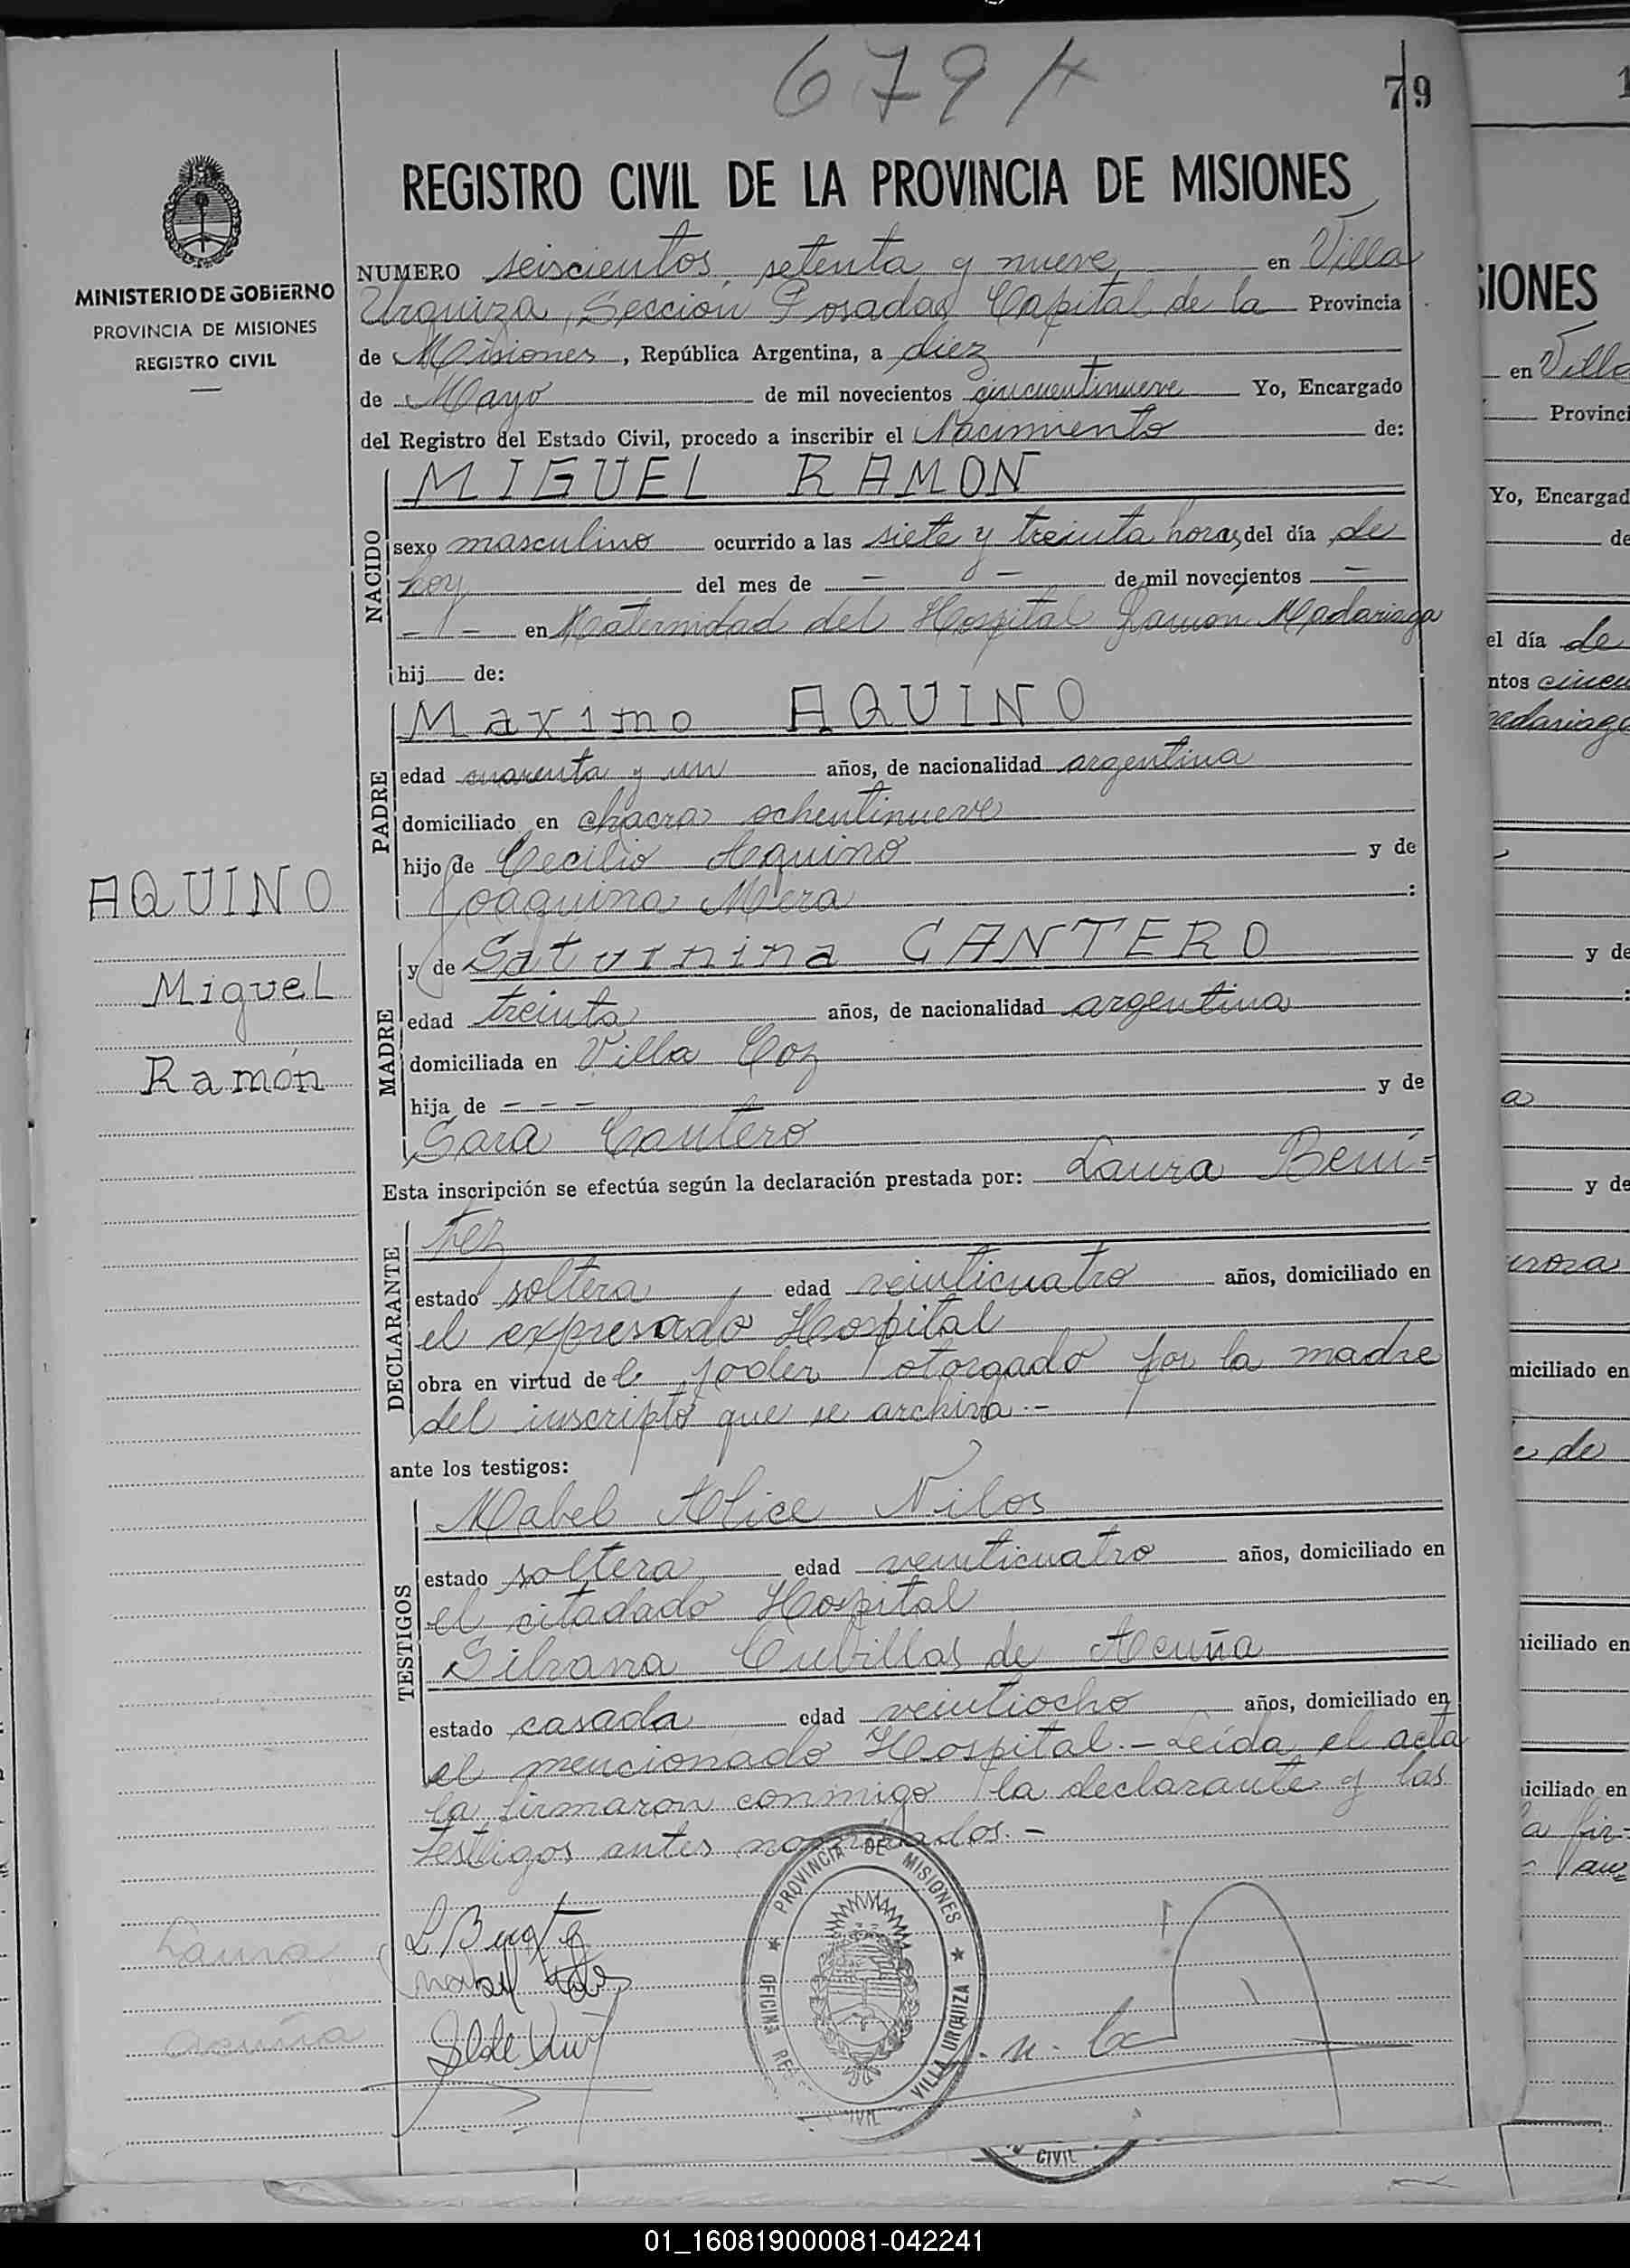 679
79
REGISTRO CIVIL DE LA PROVINCIA DE MISIONES
MINISTERIO DE GOBIERNO
PROVINCIA DE MISIONES
REGISTRO CIVIL
NUMERO seiscientos setenta y nueve en Villa
Urquiza, Sección Posadas Capital de la Provincia
de Misiones, República Argentina, a diez
de Mayo de mil novecientos cincuentinueve Yo, Encargado
del Registro del Estado Civil, procedo a inscribir el Nacimiento de:
NACIDO
MIGUEL RAMON
sexo masculino ocurrido a las siete y treinta horas del día de
hoy del mes de — — de mil novecientos —
- - en Maternidad del Hospital Ramon Madariaga
hij de:
PADRE
Maximo AQUINO
edad cuarenta y un años, de nacionalidad argentina
domiciliado en chacra ochentinueve
hijo de Cecilio Aquino y de
Joaquina Mera :
AQUINO
Miguel
Ramón
MADRE
y de Saturnina CANTERO
edad treinta años, de nacionalidad argentina
domiciliada en Villa Coz
hija de - - - y de
Sara Cantero
Esta inscripción se efectúa según la declaración prestada por: Laura Bení=
tez
DECLARANTE
estado soltera edad veinticuatro años, domiciliado en
el expresado Hospital
obra en virtud de l poder otorgado por la madre
del inscripto que se archiva.-
ante los testigos:
TESTIGOS
Mabel Alice Nilos
estado soltera edad veinticuatro años, domiciliado en
el citadado Hospital
Silvana Cubillas de Acuña
estado casada edad veintiocho años, domiciliado en
el mencionado Hospital.- Leída el acta
la firmaron conmigo la declarante y las
testigos antes nombrados.-
Laura
L Benitez
Acuña
PROVINCIA DE MISIONES
OFICINA
VILLA URQUIZA
CIVIL
IONES
en Villa
Provinci
Yo, Encargad
de
el día de
ntos cincu
adariaga
y de
:
a
y de
miciliado en
e de
iciliado en
iciliado en
la fir-
CIVIL
01_160819000081-042241